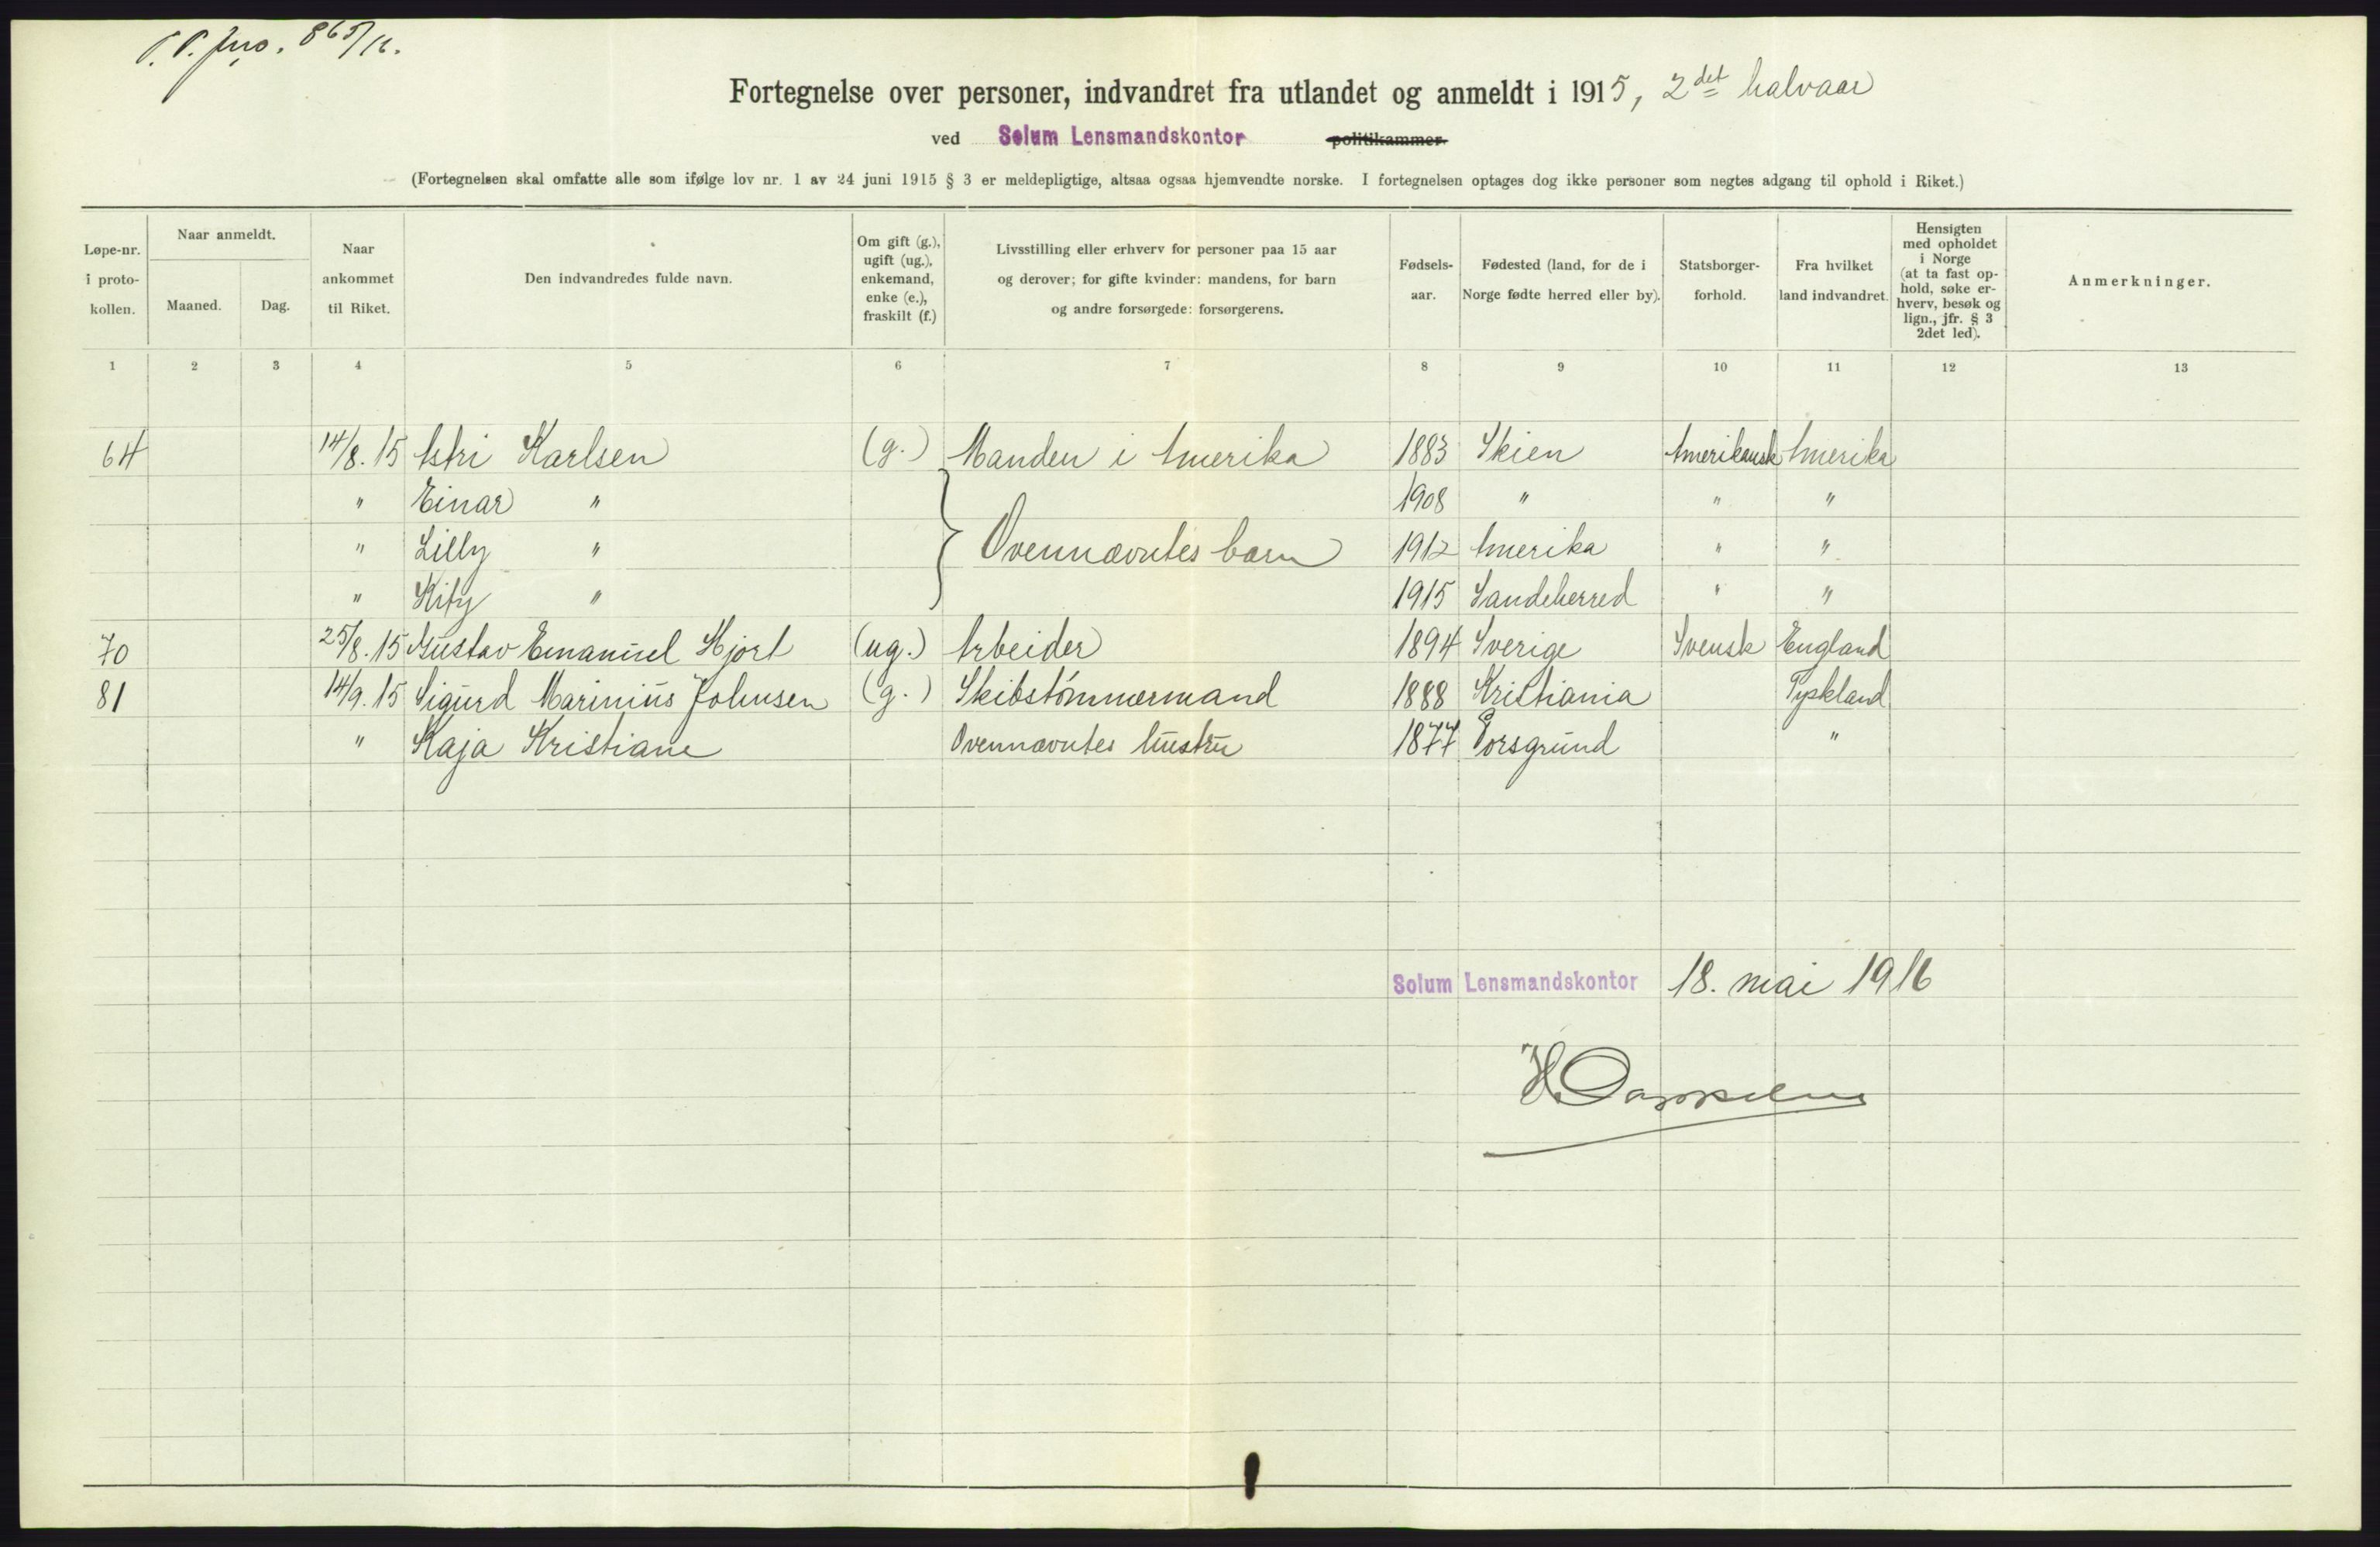 865/16.
Fortegnelse over personer, indvandret fra utlandet og anmeldt i 1915, 2det halvaar
ved Solum Lensmandskontor politikammer.
(Fortegnelsen skal omfatte alle som ifølge lov nr. 1 av 24 juni 1915 § 3 er meldepligtige, altsaa ogsaa hjemvendte norske. I fortegnelsen optages dog ikke personer som negtes adgang til ophold i Riket.)
Løpe-nr. i proto-kollen.
Naar anmeldt.
Maaned.
Dag.
Naar ankommet til Riket.
Den indvandredes fulde navn.
Om gift (g.), ugift (ug.), enkemand, enke (e.), fraskilt (f.)
Livsstilling eller erhverv for personer paa 15 aar og derover; for gifte kvinder: mandens, for barn og andre forsørgede: forsørgerens.
Fødsels-aar.
Fødested (land, for de i Norge fødte herred eller by).
Statsborger-forhold.
Fra hvilket land indvandret.
Hensigten med opholdet i Norge (at ta fast op-hold, søke er-hverv, besøk og lign., jfr. § 3 2det led).
Anmerkninger.
1 2 3 4 5 6 7 8 9 10 11 12 13
64 14/8.15 Astri Karlsen (g.) Manden i Amerika 1883 Skien Amerikansk Amerika
" Einar " 1908 " " "
" Lilly " Ovennævntes barn 1912 Amerika " "
" Kity " 1915 Sandeherred " "
70 25/8.15 Gustav Emanuel Hjort (ug.) Arbeider 1894 Sverige Svensk England
81 14/9.15 Sigurd Marinius Johnsen (g.) Skibstømmermand 1888 Kristiania Tyskland
" Kaja Kristiane Ovennævntes hustru 1877 Porsgrund "
Solum Lensmandskontor 18. mai 1916